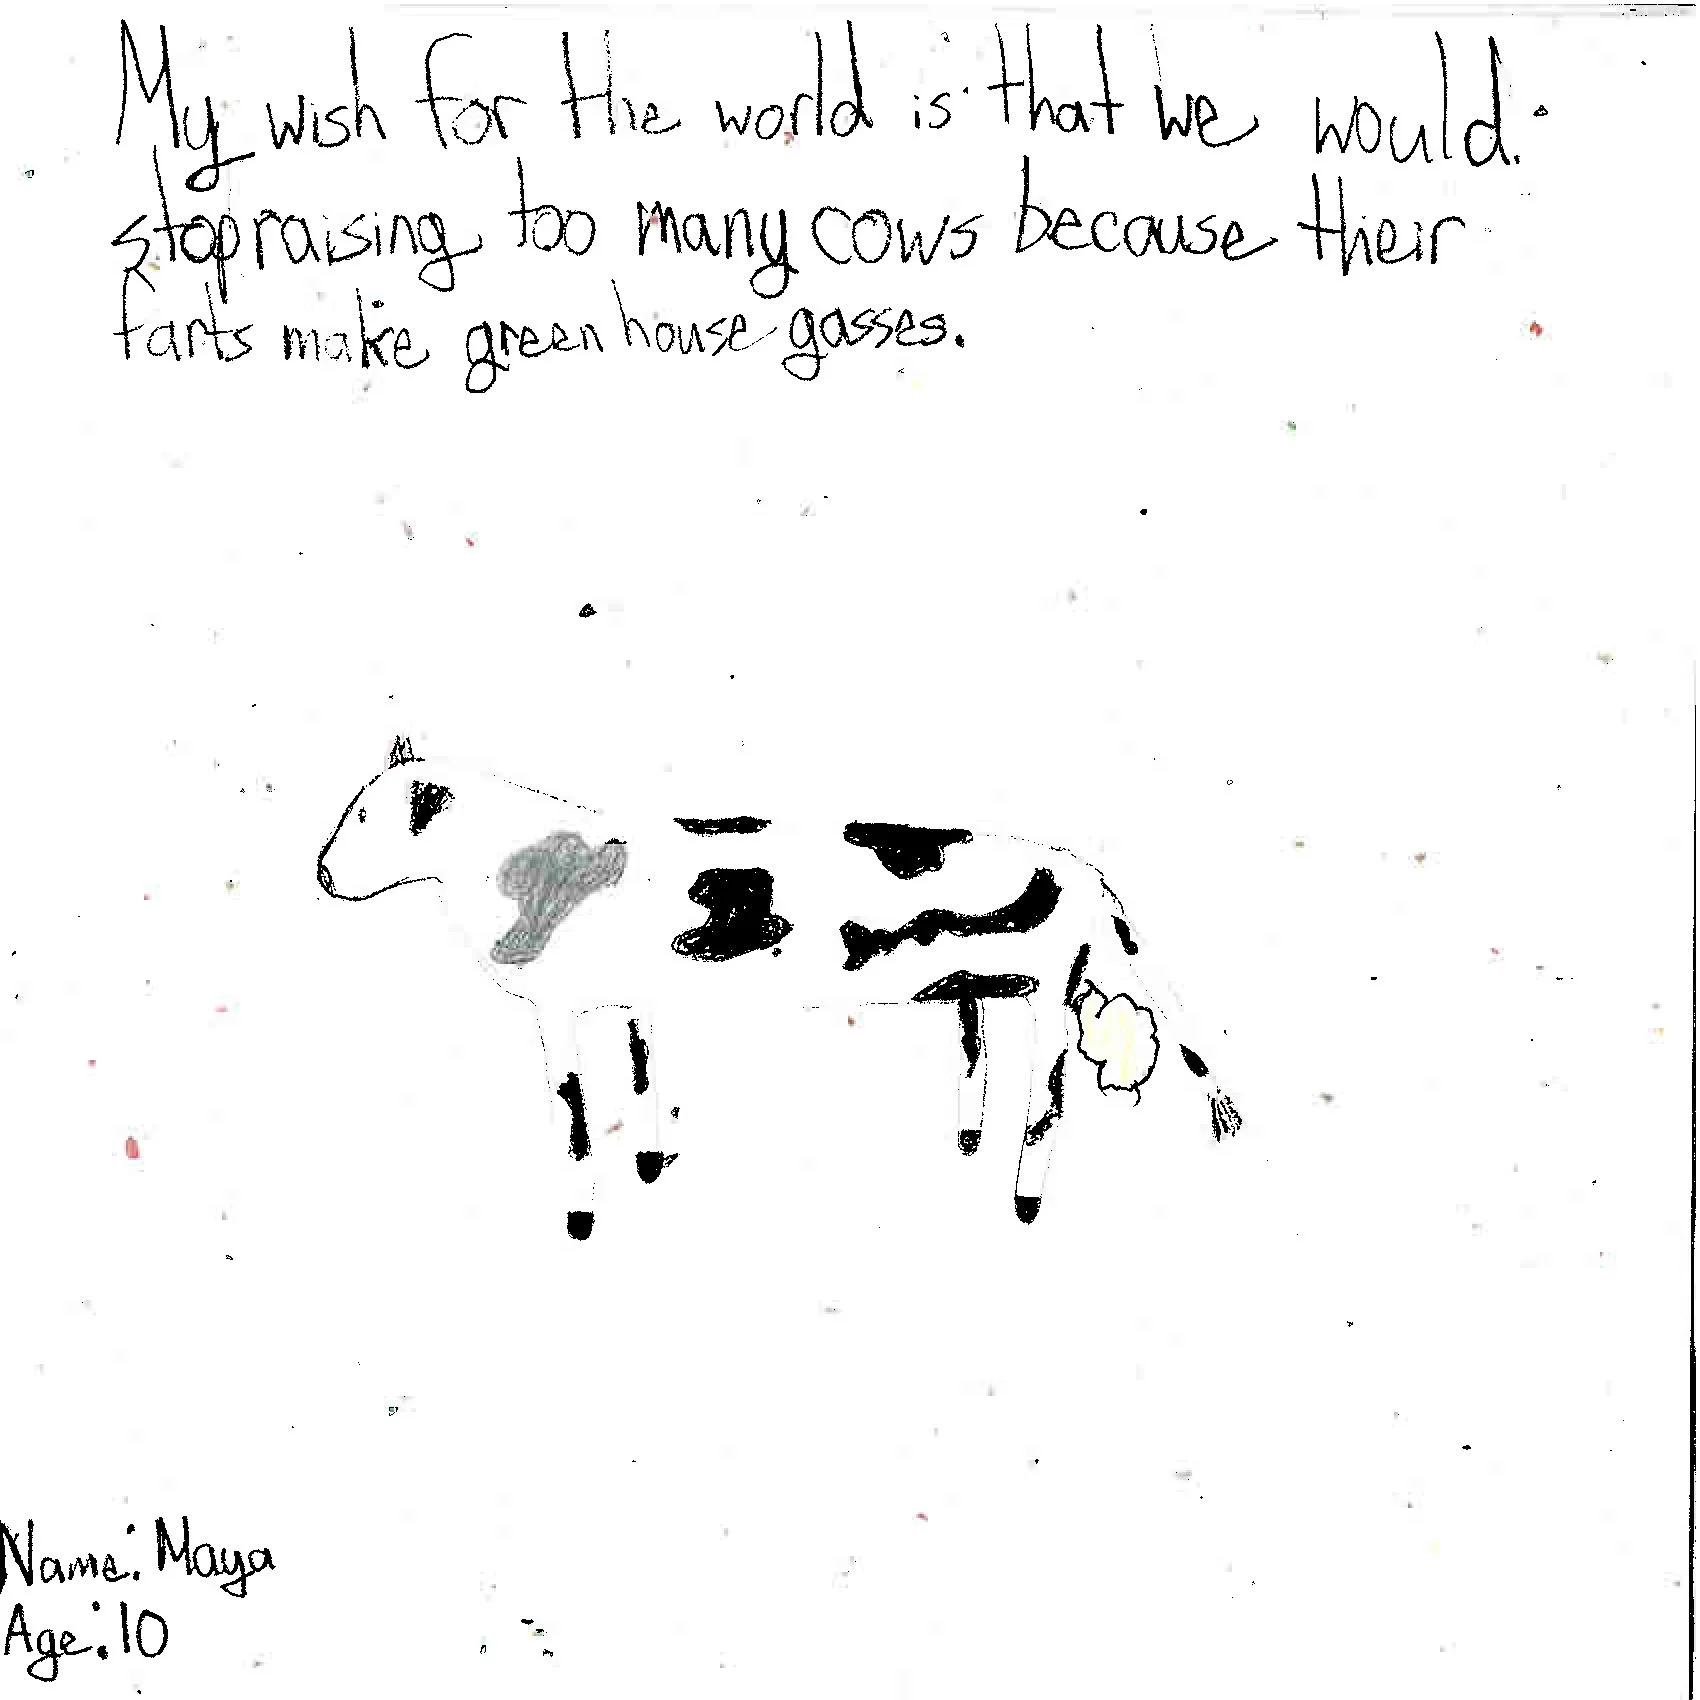 My wish for the world is that we would
stop raising too many cows because their
farts make green house gasses.
Name: Maya
Age: 10